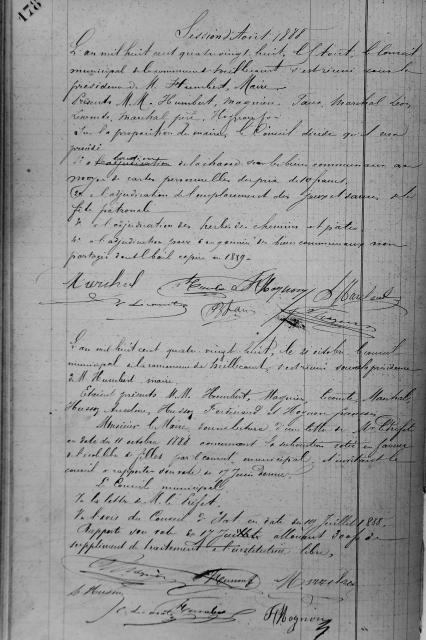 178
Session d'Août 1888
L'an mil huit cent quatre vingt huit, le 5 Août, le Conseil
municipal de la commune s'est réuni sous la
présidence de M. Humbert, Maire
Présents M.M. Humbert, Magnien, Marchal Léon,
Lecomte, Marchal père, Hognon
Sur la proposition du maire, le Conseil décide qu'il sera
procédé
1° à location de la chasse sur les biens communaux au
moyen de cartes personnelles du prix de 10 francs,
2° à l'adjudication de l'emplacement des jeux et danses de la
fête patronale
3° à l'adjudication des herbes des chemins et pâtis
4° à l'adjudication pour des biens communaux non
partagés dont le bail expire en 1889
Marchal Humbert Hognon Marchal
Lecomte
L'an mil huit cent quatre vingt huit, le 20 octobre le conseil
municipal de la commune de s'est réuni sous la présidence
de M. Humbert, maire.
Etaient présents M.M. Humbert, Magnien, Lecomte, Marchal,
Husson Husson Ferdinand et Hognon
Monsieur le Maire donne lecture d'une lettre de Mr le Préfet
en date du 11 octobre 1888 concernant la subvention votée en faveur
de l'école de filles par le conseil municipal et invitant le
conseil à rapporter son vote du 17 Juin dernier.
Le Conseil municipal
Vu la lettre de M. le Préfet
Vu l'avis du Conseil d'Etat en date du 19 Juillet 1888
Rapporte son vote du 17 allouant 300 f de
supplément de traitement à l'institutrice libre,
Humbert Marchal
Husson
Lecomte Hognon